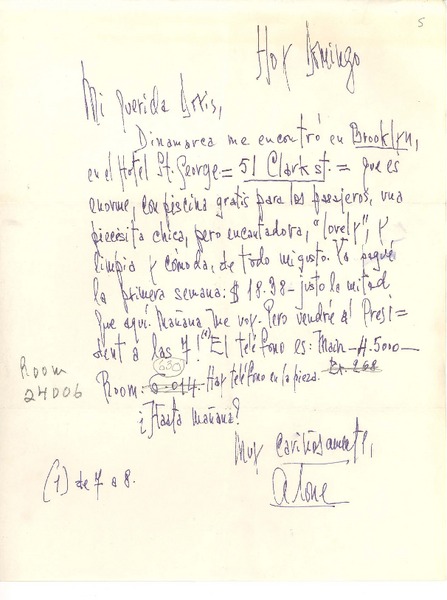 5
Hoy Domingo
Mi querida Doris,
Dinamarca me encontró en Brooklyn,
en el Hotel St. George = 51 Clark st. = que es
enorme, con piscina gratis para los pasajeros, una
piecesita chica, pero encantadora, "lovely", y
limpia y cómoda, de todo mi gusto. Ya pagué
la primera semana: $ 18.98 - justo la mitad
que aquí. Mañana me voy. Pero vendré al Presi=
dent a las 7!(1) El teléfono es: Main - 4.5000 -
Room: Hay teléfono en la pieza.
Room
24006
¿Hasta mañana?
Muy cariñosamente,
Alone
(1) de 7 a 8.